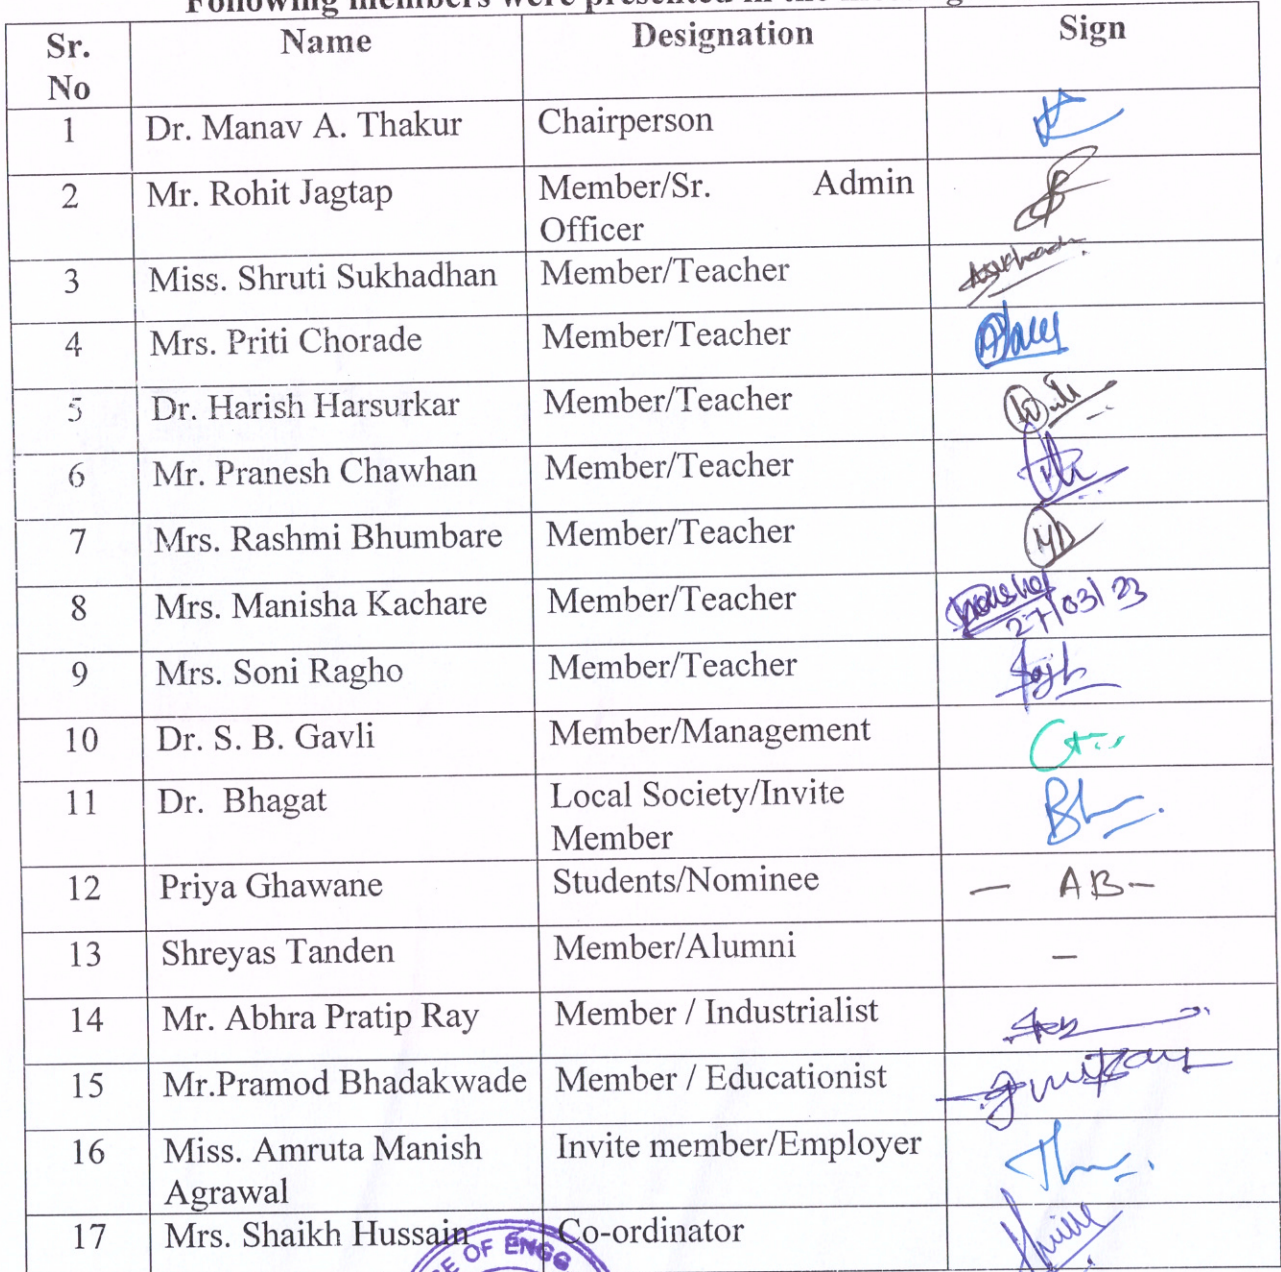 Following members were presented in the
Sr. No Name Designation Sign
1 Dr. Manav A. Thakur Chairperson
2 Mr. Rohit Jagtap Member/Sr. Admin Officer
3 Miss. Shruti Sukhadhan Member/Teacher
4 Mrs. Priti Chorade Member/Teacher
5 Dr. Harish Harsurkar Member/Teacher
6 Mr. Pranesh Chawhan Member/Teacher
7 Mrs. Rashmi Bhumbare Member/Teacher
8 Mrs. Manisha Kachare Member/Teacher 27/03/23
9 Mrs. Soni Ragho Member/Teacher
10 Dr. S. B. Gavli Member/Management
11 Dr. Bhagat Local Society/Invite Member
12 Priya Ghawane Students/Nominee - AB -
13 Shreyas Tanden Member/Alumni -
14 Mr. Abhra Pratip Ray Member / Industrialist
15 Mr.Pramod Bhadakwade Member / Educationist
16 Miss. Amruta Manish Agrawal Invite member/Employer
17 Mrs. Shaikh Hussain Co-ordinator
OF ENGG